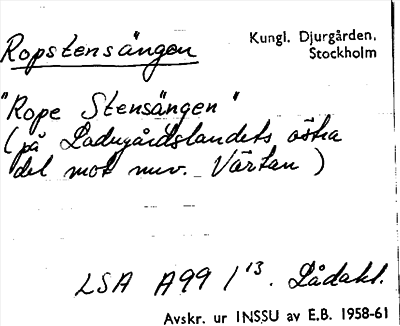 Ropstensängen
Kungl. Djurgården,
Stockholm
"Rope Stensängen"
(på Ladugårdslandets östra
del mot nuv. Värtan)
LSA A99/13. Lådakt.
Avskr. ur INSSU av E.B. 1958-61